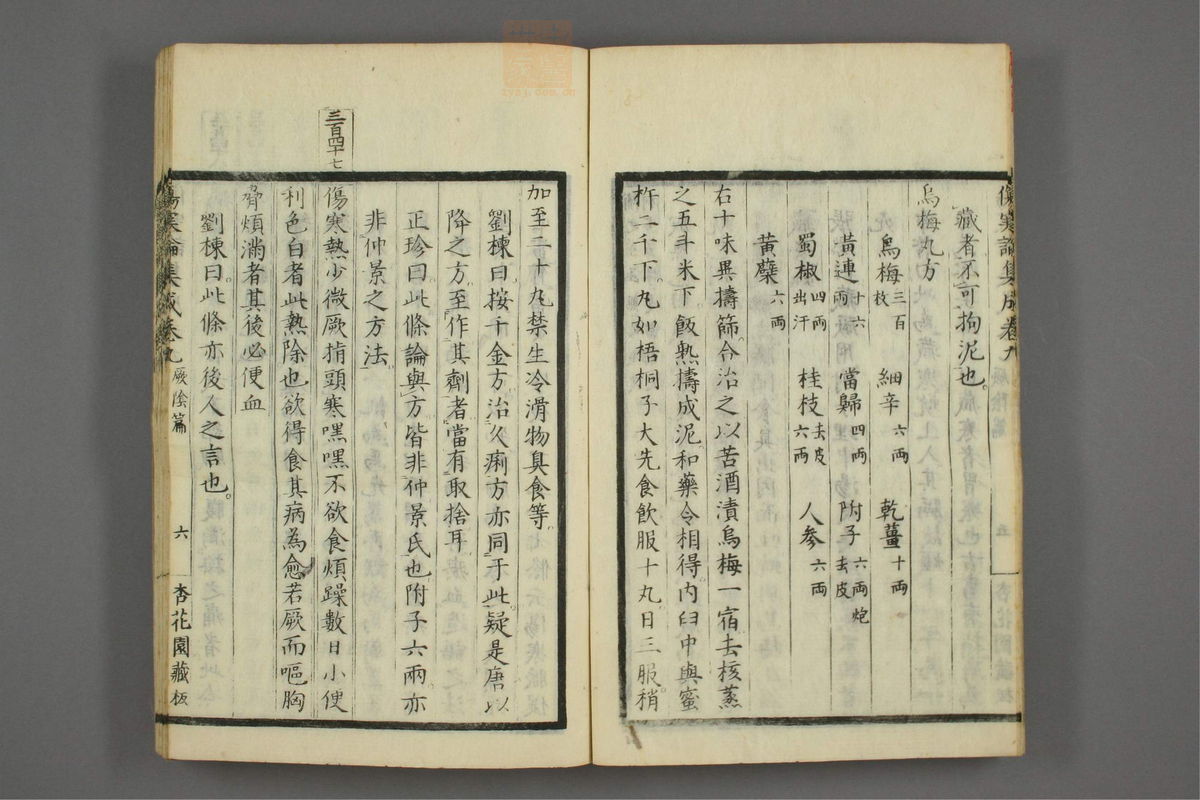 傷寒論集成卷九
藏者不可拘泥也
烏梅丸方
烏梅三百枚 細辛六両 乾薑十両
黃連十六両 當歸四両 附子六両炮去皮
蜀椒四両出汗 桂枝去皮六両 人参六両
黃蘗六両
右十味異擣篩合治之以苦酒漬烏梅一宿去核蒸
之五斗米下飯熟擣成泥和藥令相得內臼中與蜜
杵二千下丸如梧桐子大先食飲服十丸日三服稍
加至二十丸禁生冷滑物臭食等
劉棟曰按千金方治久痢方亦同于此疑是唐以
降之方至作其劑者當有取捨耳
正珍曰此條論與方皆非仲景氏也附子六兩亦
非仲景之方法
三百四十七
傷寒熱少微厥指頭寒嘿嘿不欲食煩躁數日小便
利色白者此熱除也欲得食其病為愈若厥而嘔胸
脅煩滿者其後必便血
劉棟曰此條亦後人之言也
傷寒論集成卷九 厥陰篇 六 杏花園藏板